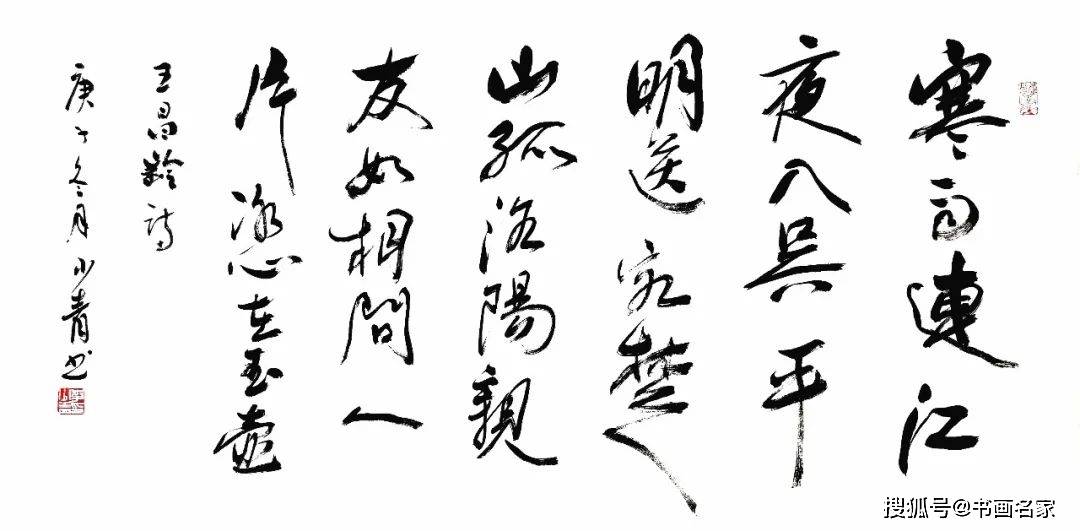 寒雨連江
夜入吳平
明送客楚
山孤洛陽親
友如相問一
片冰心在玉壺
王昌齡詩
庚子冬月小青书
搜狐号@书画名家